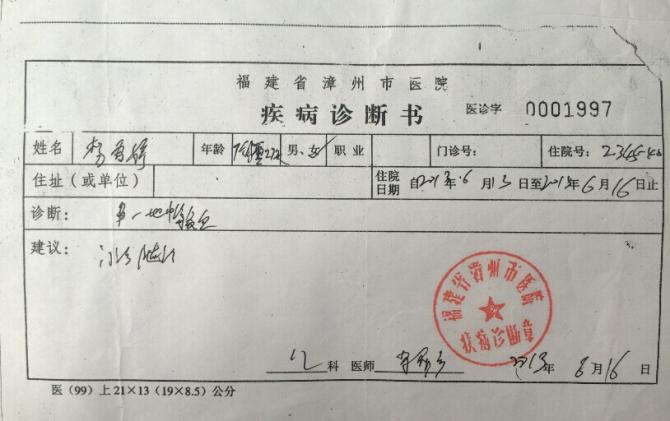 福建省漳州市医院
疾病诊断书 医诊字 0001997
姓名 年龄 男、女 职业 门诊号: 住院号:
住址(或单位) 住院日期 自2013年6月13日至2013年6月16日止
诊断:
建议: 门诊随诊
福建省漳州市医院
疾病诊断章
儿科 医师 2013年6月16日
医(99)上21×13(19×8.5)公分